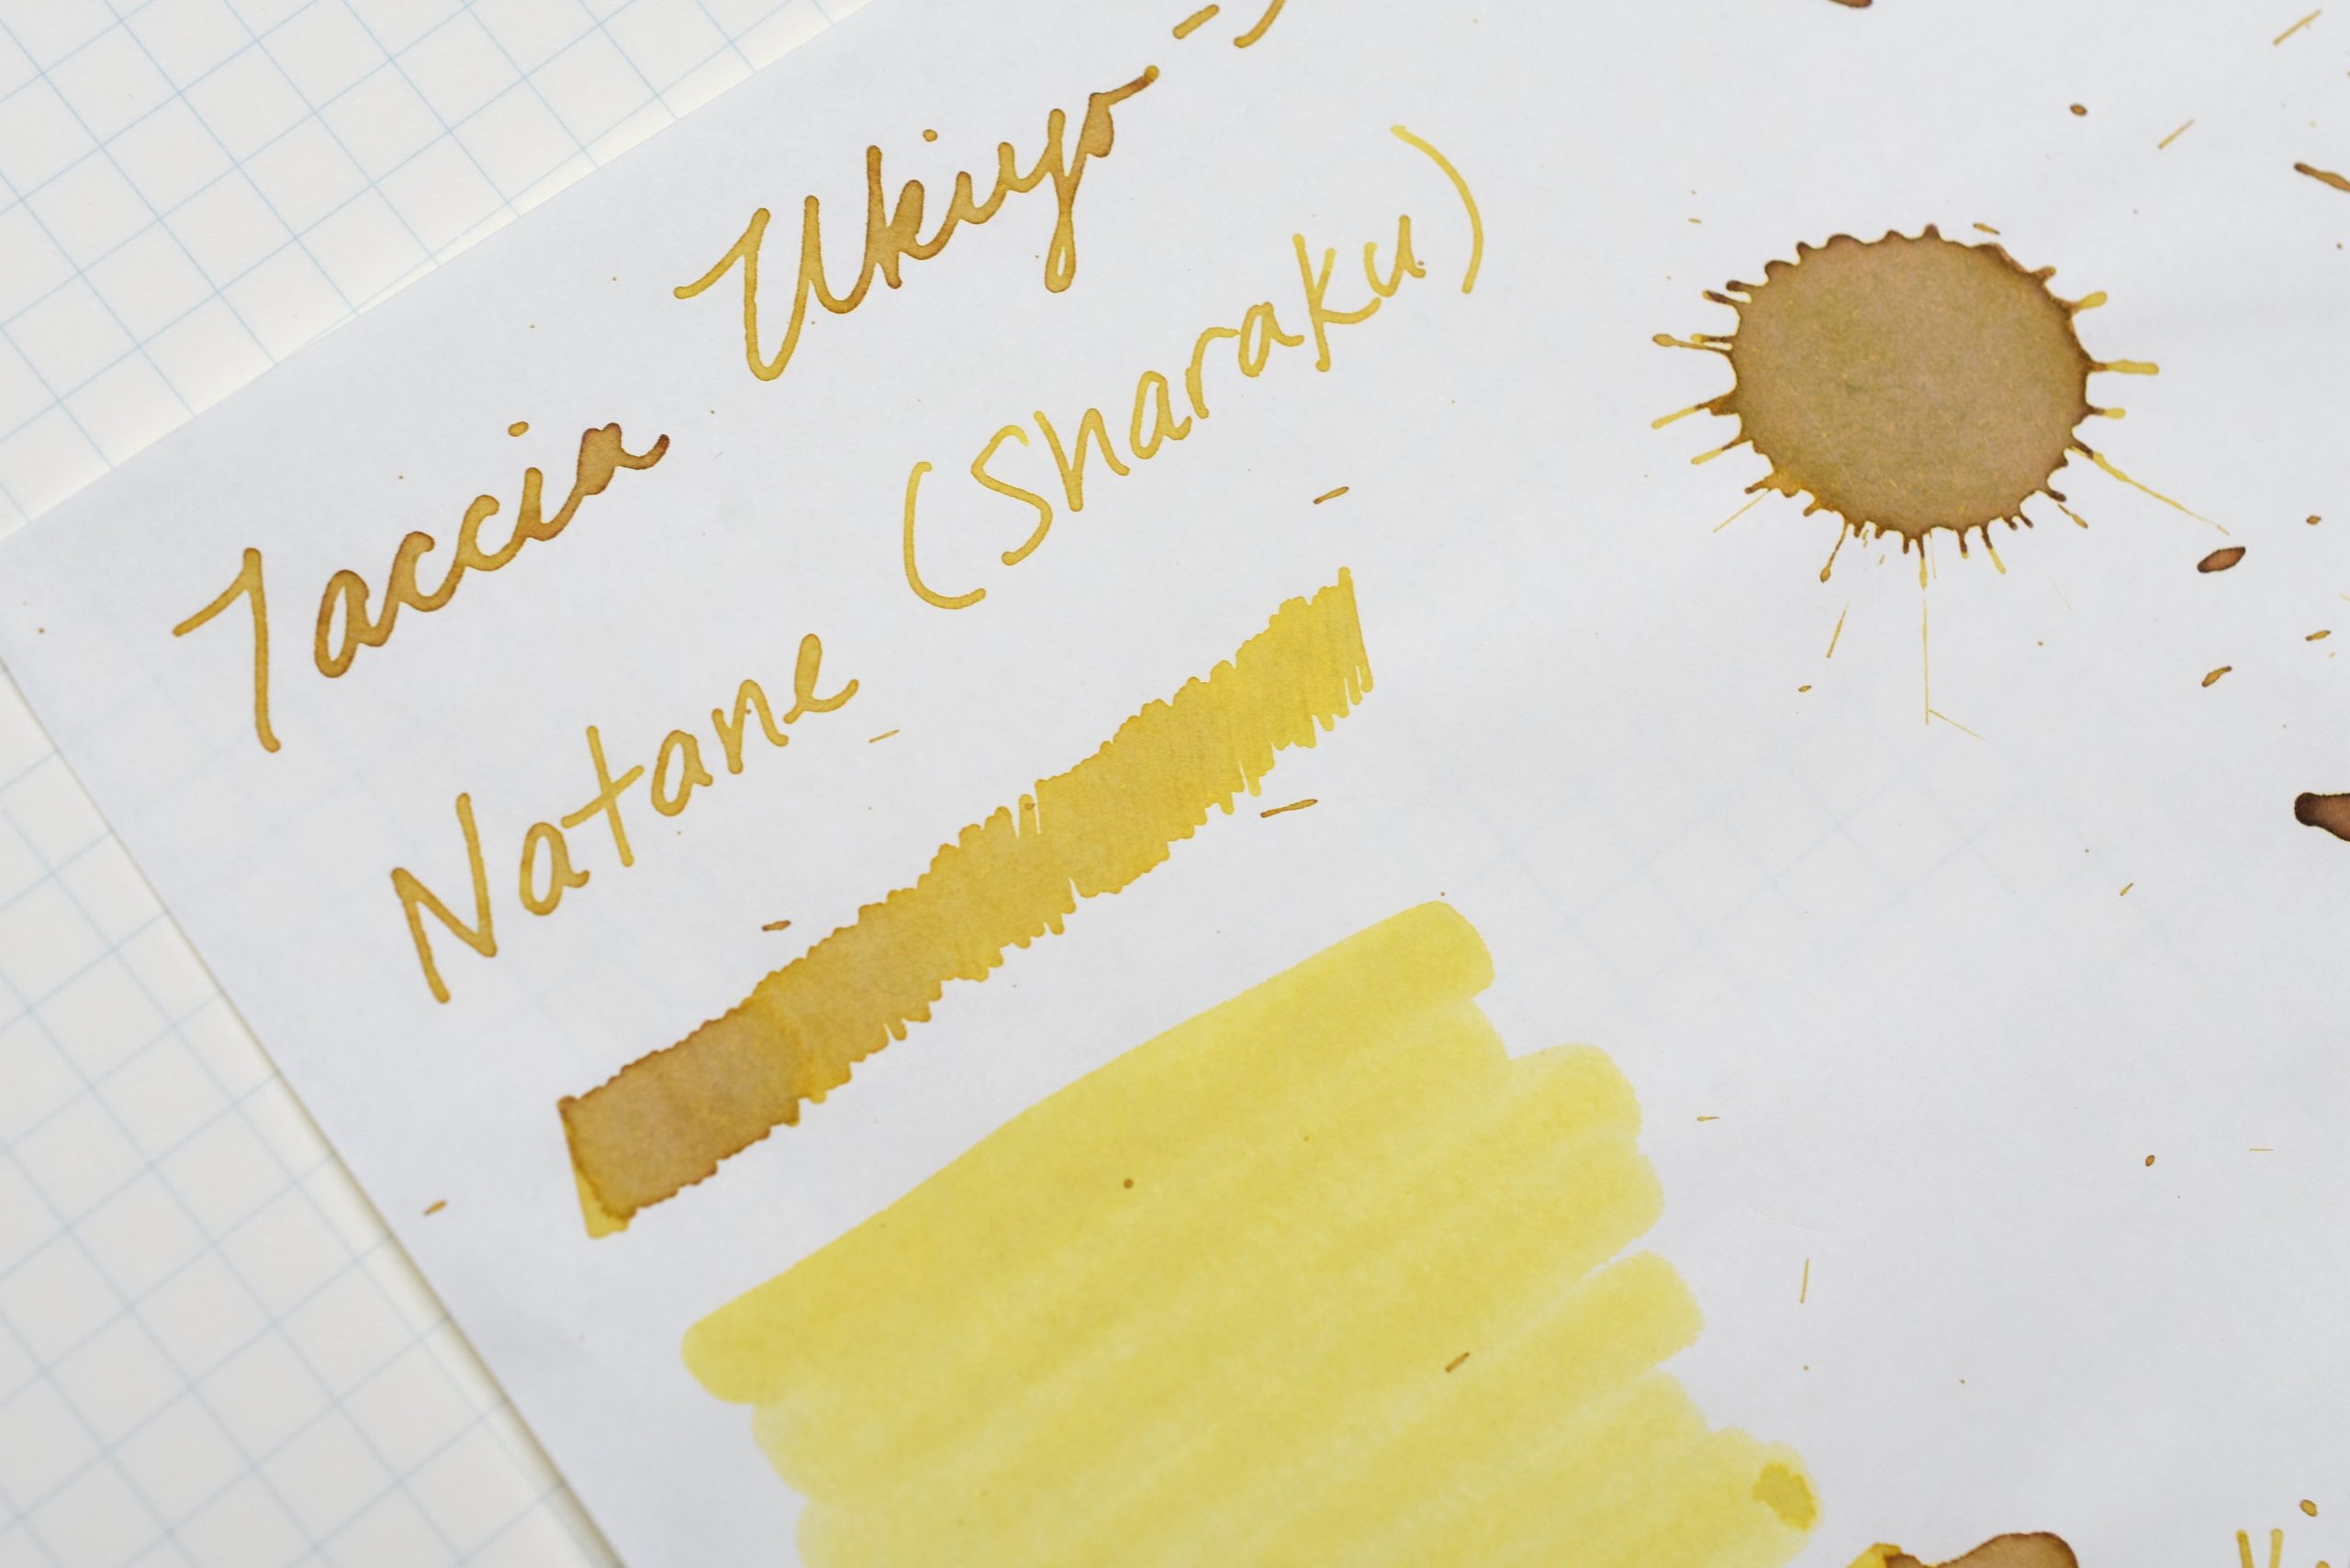 Taccia Ukiyo-
Natane (Sharaku)